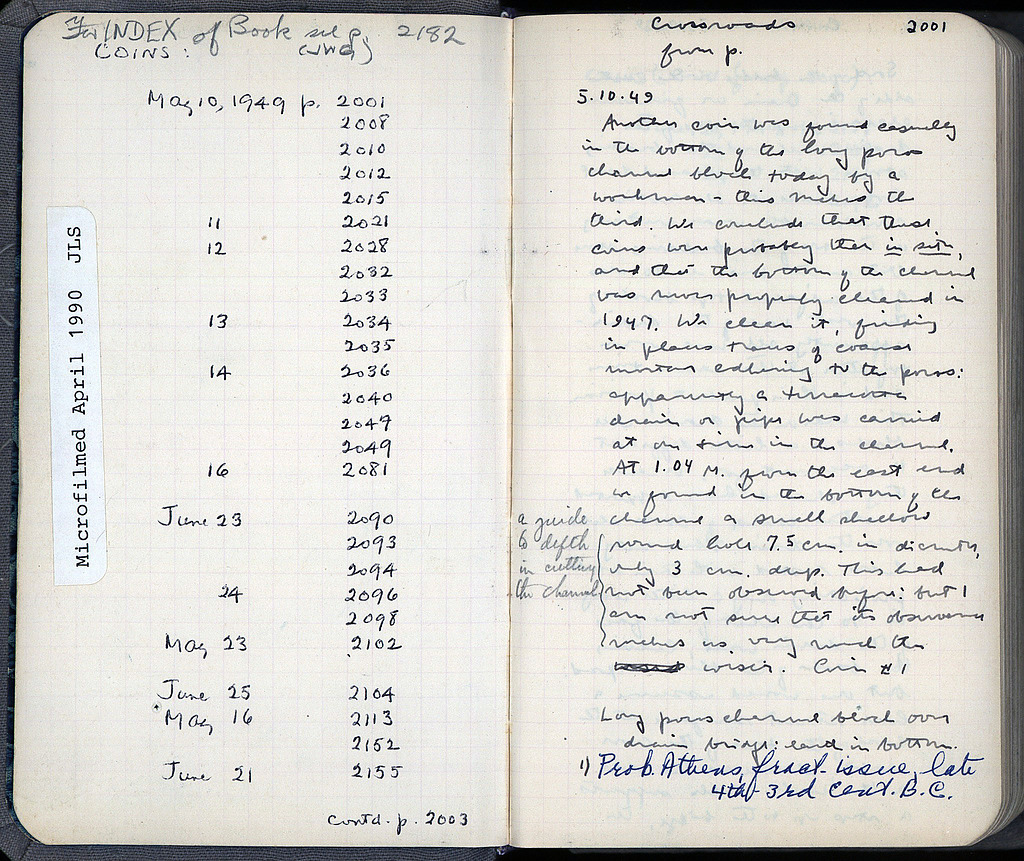 For INDEX of Book see p. 2182
COINS: (JWG)
May 10, 1949 p. 2001
2008
2010
2012
2015
11 2021
12 2028
2032
2033
13 2034
2035
14 2036
2040
2047
2049
16 2081
June 23 2090
2093
2094
24 2096
2098
May 23 2102
June 25 2104
May 16 2113
2152
June 21 2155
contd. p. 2003
Microfilmed April 1990 JLS
Crossroads 2001
from p.
5.10.49
Another coin was found casually
in the bottom of the long poros
channel block today by a
workman - this makes the
third. We conclude that these
coins were probably then in situ,
and that the bottom of the channel
was never properly cleaned in
1947. We clean it, finding
in places traces of coarse
mortar adhering to the poros:
apparently a terracotta
drain or pipe was carried
at one time in the channel.
At 1.04 M. from the east end
we found in the bottom of the
channel a small shallow
round hole 7.5 cm. in diameter,
only 3 cm. deep. This had
not been observed before: but I
am not sure that its observance
makes us very much the
wiser. Coin #1
a guide
to depth
in cutting
the channel
Long poros channel block over
drain bridge: sand in bottom.
1) Prob. Athens, fract. issue, late
4th-3rd cent. B.C.